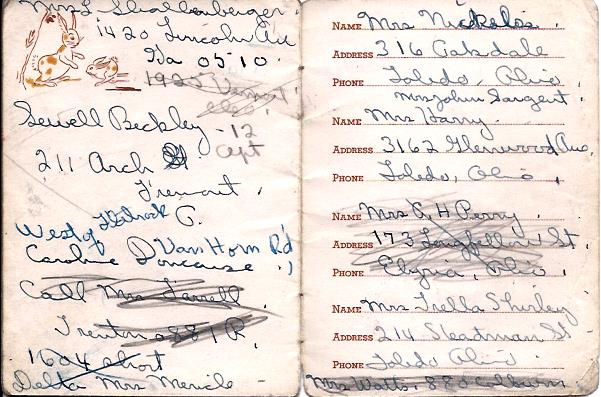 Mrs L Shallenberger.
1420 Lincoln Ave
Ga 0510
1925 Vermont
Sewell Beckley - 12
211 Arch St. Apt
Fremont.
West of Detroit C.
Van Horn Rd
Caroline Doncouse.
Call Mrs Farrell
Trenton 0881 R.
1604 Short
Delta Mrs Mericle
NAME Mrs Nickols.
ADDRESS 316 Oakdale
PHONE Toledo, Ohio.
Mrs John Sargent.
NAME Mrs Harry
ADDRESS 3162 Glenwood Ave.
PHONE Toledo, Ohio.
NAME Mrs G H Perry
ADDRESS 173 Longfellow St
PHONE Elyria, Ohio.
NAME Mrs Trella Shirley
ADDRESS 214 Steadman St
PHONE Toledo Ohio
Mrs Watts, 880 Colburn